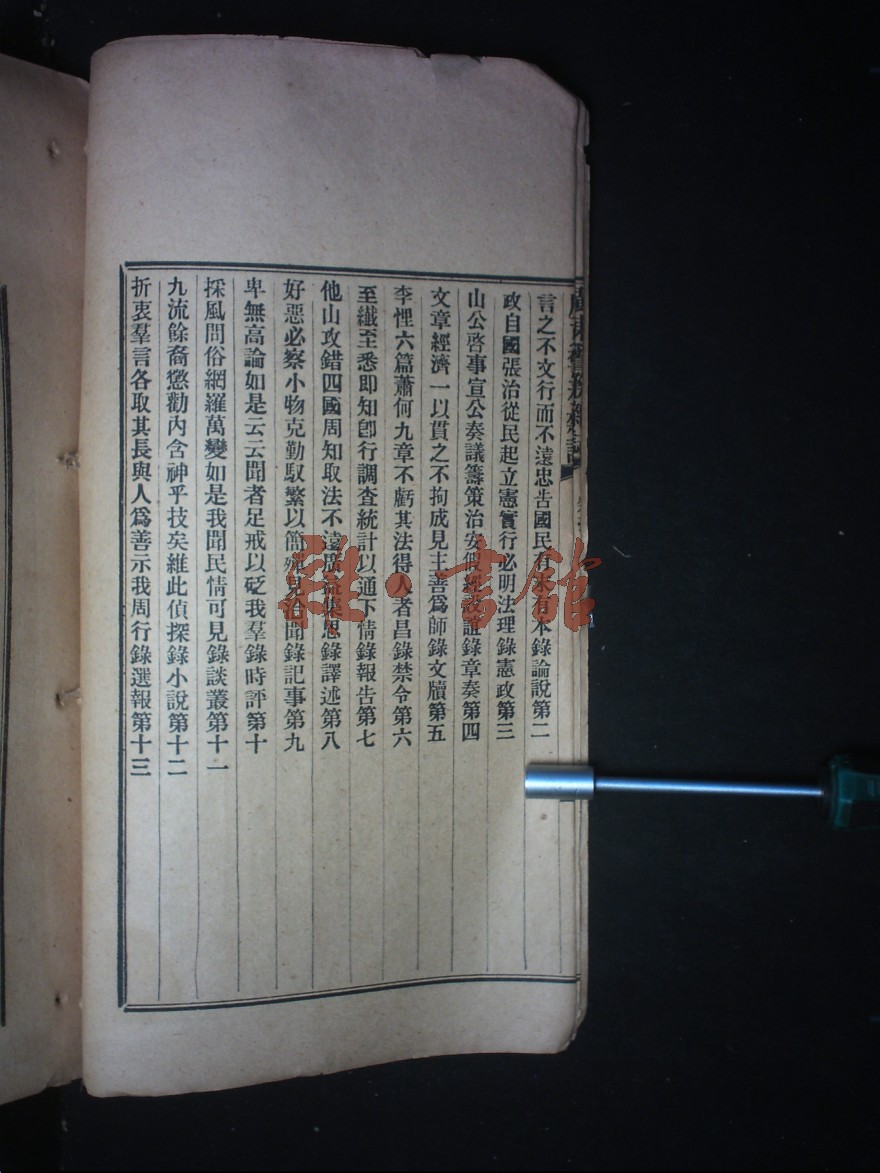 言之不文行而不遠忠告國民有末有本錄論說第二
政自國張治從民起立憲實行必明法理錄憲政第三
山公啓事宣公奏議籌策治安假經故誼錄章奏第四
文章經濟一以貫之不拘成見主善爲師錄文牘第五
李悝六篇蕭何九章不虧其法得人者昌錄禁令第六
至纖至悉即知卽行調查統計以通下情錄報告第七
他山攻錯四國周知取法不遠廣益集思錄譯述第八
好惡必察小物克勤馭繁以簡殫見洽聞錄記事第九
卑無高論如是云云聞者足戒以砭我羣錄時評第十
採風問俗網羅萬變如是我聞民情可見錄談叢第十一
九流餘裔懲勸內含神乎技矣維此偵探錄小說第十二
折衷羣言各取其長與人爲善示我周行錄選報第十三
雜·書館